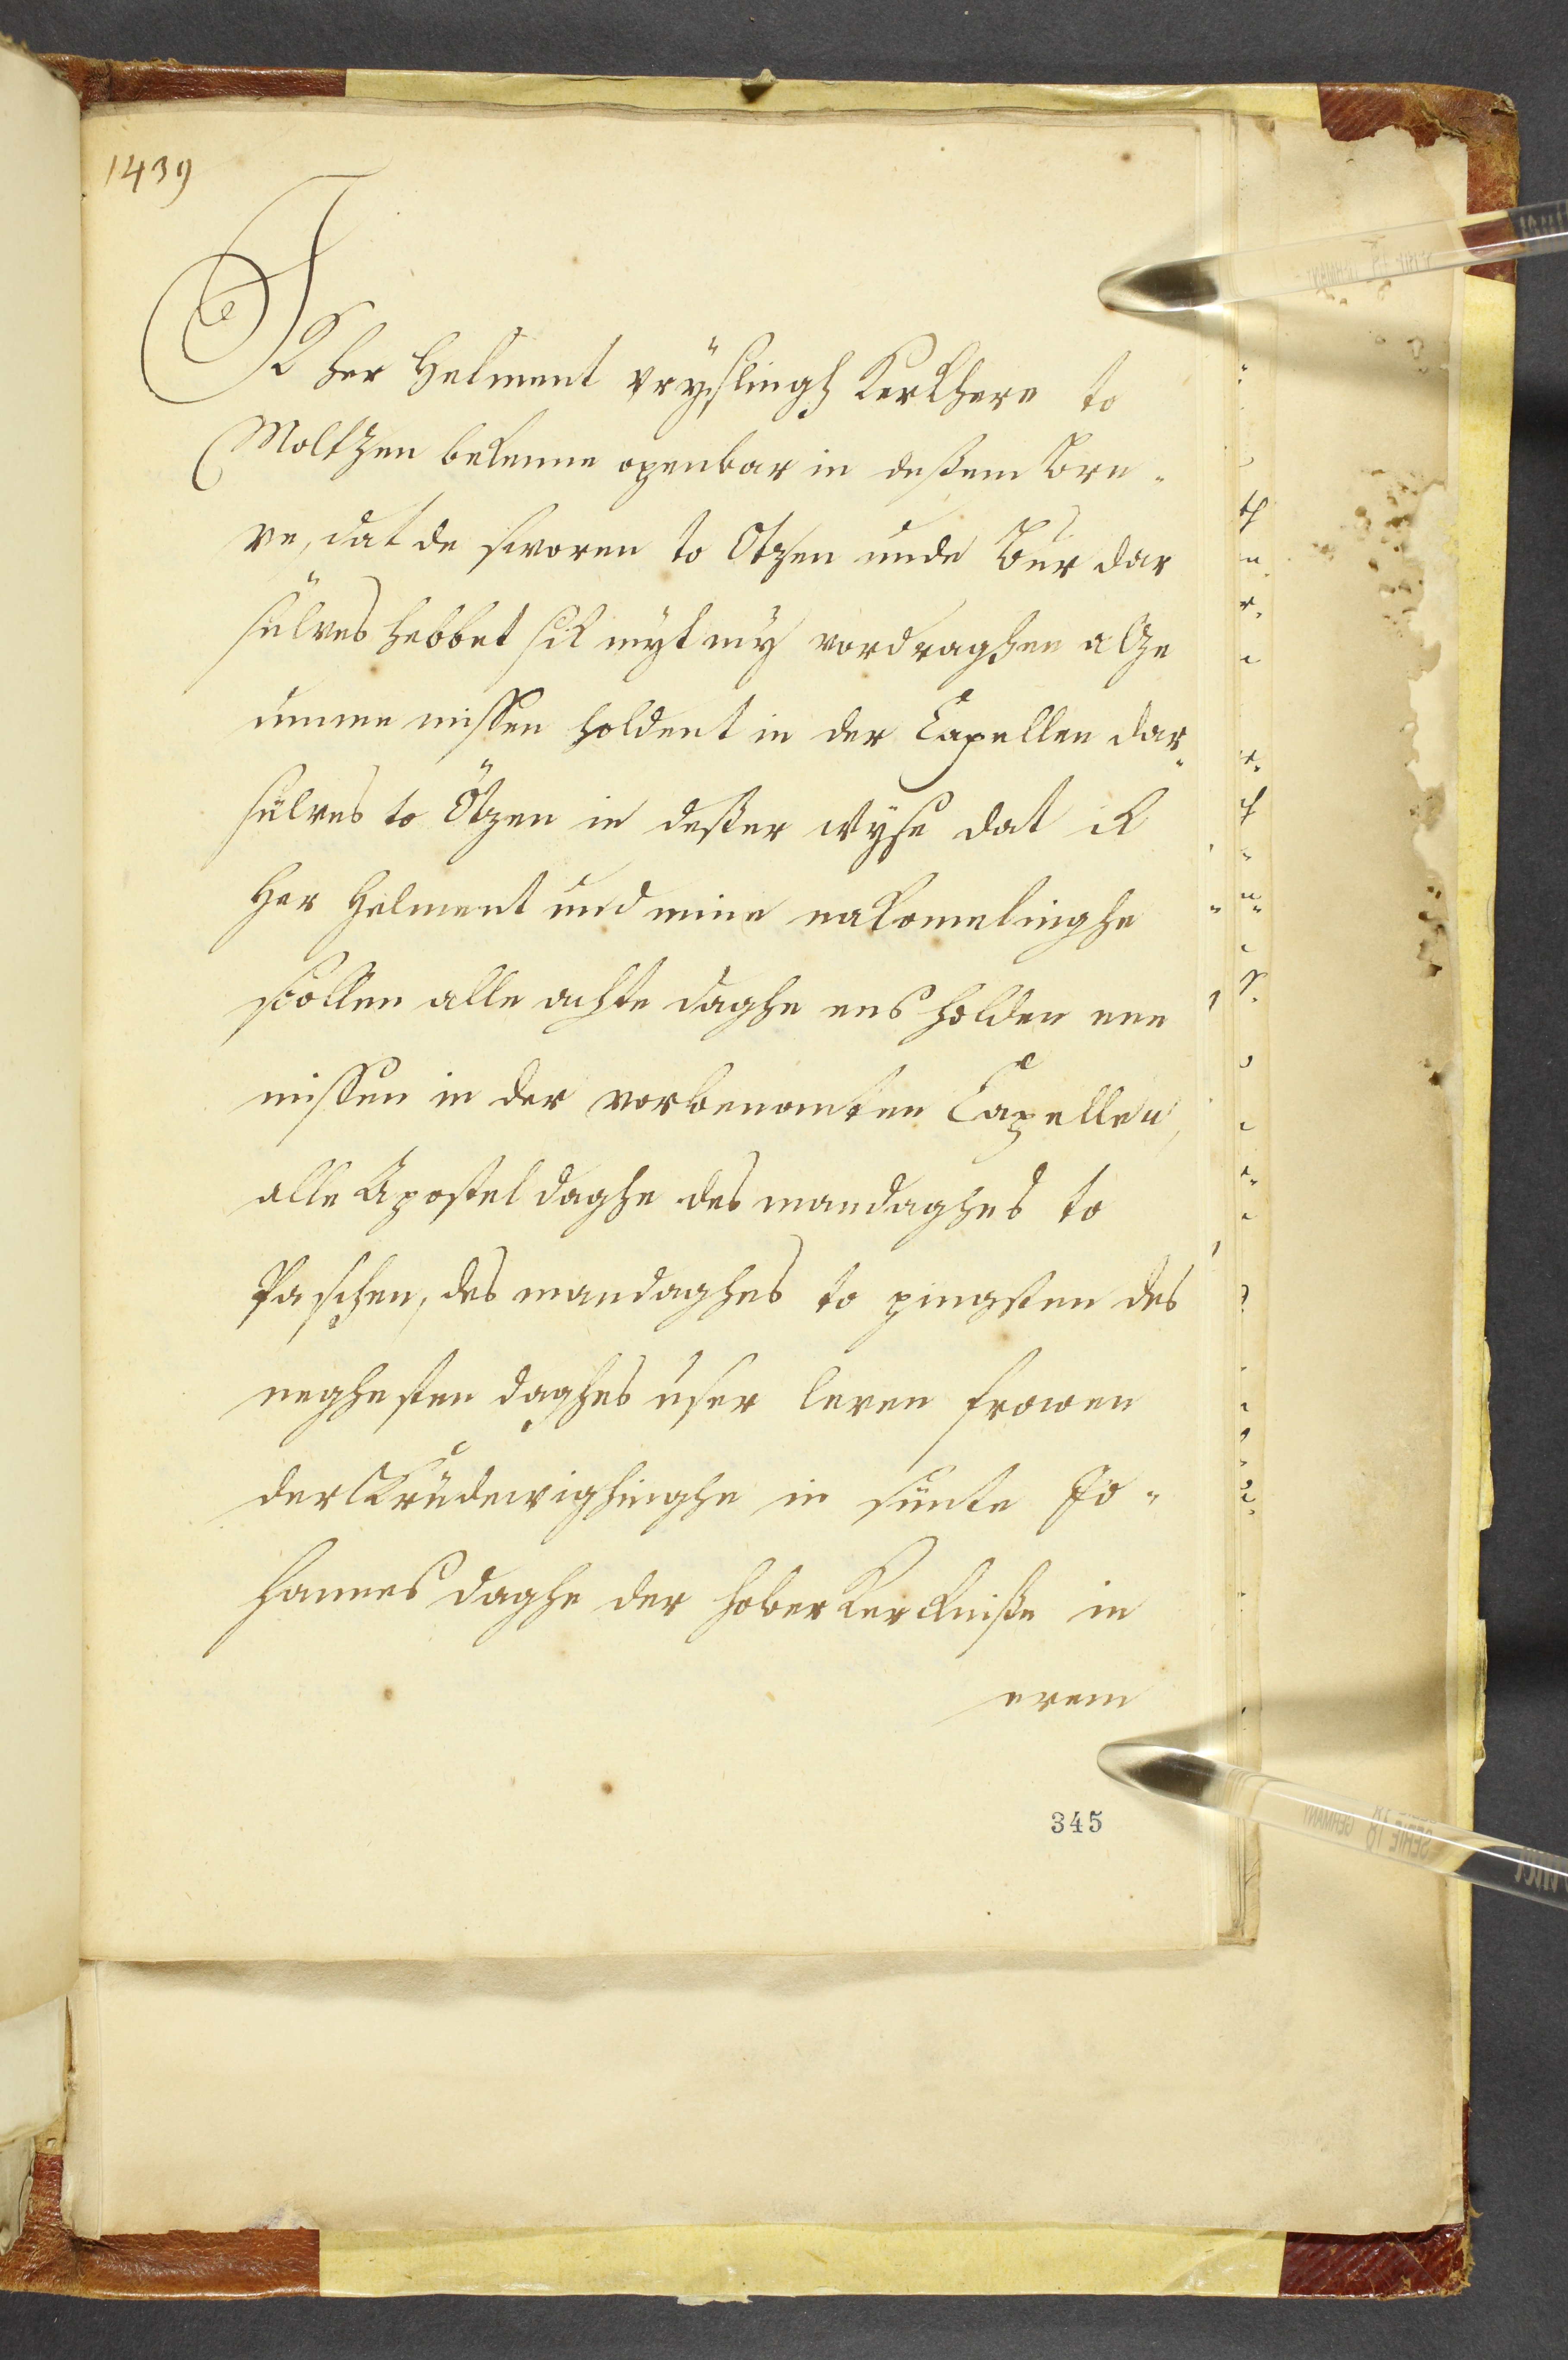 1439
Ik her Helment vrÿslingh Kerkhere to
Moltzen bekenne openbar in deßem Bre-
ve, dat de sworen to Otzen unde Bur dar
sülves hebbet sik mÿt mÿ vordraghen alze
umme missen holdent in der Capellen dar-
sülves to Ötzen in deßer wÿse dat ik
Her Helment und mine nakomelinghe
scollen alle achte daghe ens holden ene
missen in der vorbenomten Capellen,
alle Apostel daghe des mandaghes to
Paschen, des mandaghes to pingsten des
neghesten daghes user leven frowen
der Krudewighinghe in sunte Jo-
hannes daghe der hober Kerckniße in
erem
345